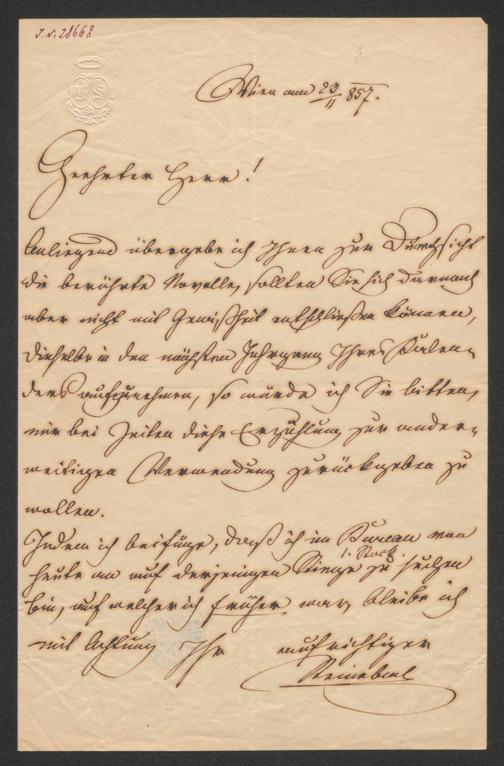 J. N. 28668
Wien am 23/11 857.
Geehrter Herr!
Anliegend übergebe ich Ihnen zur Durchsicht
die berührte Novelle, sollten Sie sich darnach
aber nicht mit Gewißheit entschließen können,
dieselbe in den nächsten Jahrgang Ihres Kalen-
ders aufzunehmen, so würde ich Sie bitten,
mir bei Zeiten diese Erzählung zur ander-
weitigen Verwendung zurückgeben zu
wollen.
Indem ich beifüge, daß ich im Bureau von
1. Stock
heute an auf derjenigen Stiege zu suchen
bin, auf welcher ich früher war, bleibe ich
mit Achtung Ihr aufrichtiger
Steinebach